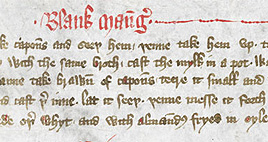 Blank maung
ke capons and seeþ hem. þenne take hem up. t
with the same broth. cast the mylk in a pot. wa
nne take brawn of capons teere it small and
and cast þer inne. lat it seeþ. þenne messe it forth
ede oþer whyt. and with almandes fryed in oyle